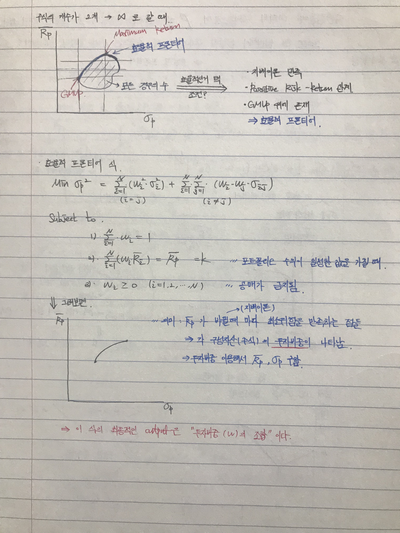 주식의 개수가 2개 → N개로 갈 때.
R̄p
Maximum Return
효율적 프론티어
GMVP
모든 경우의 수
효율적이기 위한 조건?
· 지배이론 만족
· Positive Risk-Return 관계
· GMVP 위에 존재
⇒ 효율적 프론티어.
σp
· 효율적 프론티어 식.
Min σp² = Σ(wi²·σi²) + ΣΣ(wi·wj·σij)
(i=j) (i≠j)
Subject to.
1) Σwi = 1
2) Σ(wi R̄i) = R̄p = k ~ 포트폴리오 수익이 일정한 값을 가질 때.
3) wi ≥ 0 (i=1,2,...N) ~ 공매가 금지됨.
⇓ 그래프
(지배이론)
R̄p
~ 에서 R̄p가 바뀜에 따라 최소위험을 만족하는 점들
→ 각 구성자산(주식)의 투자비중이 나타남.
→ 투자비중 이용해서 R̄p, σp 구함.
σp
⇒ 이 식의 최종적인 output은 "투자비중(w)의 조합"이다.